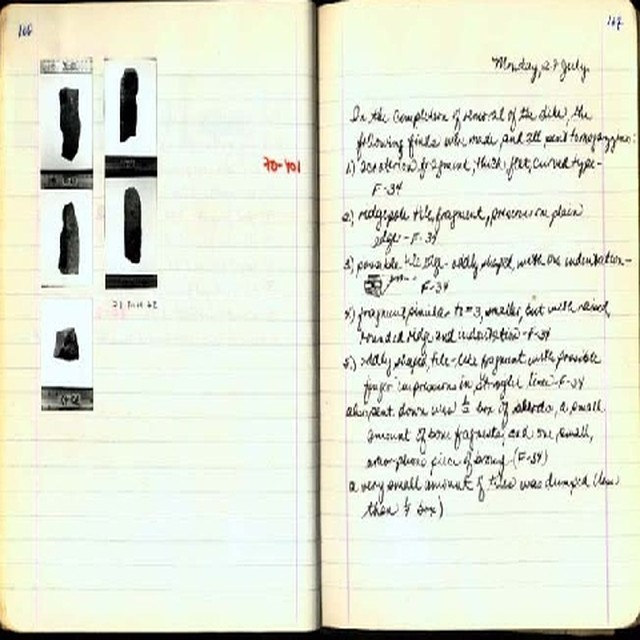 160
70-401
167
Monday, 27 July
In the completion of removal of the dike, the
following finds were made, and all sent to magazzino:
1) acroterion fragment, thick, flat, curved type-
F-34
2) ridgepole tile fragment, preserves one plain
edge-F-34
3) possible tile frag- oddly shaped, with one indentation-
F-34
4) fragment similar to #3, smaller, but with raised,
rounded ridge and indentation-F-34
5) oddly shaped, tile-like fragment with possible
finger impressions in straight line-F-34
also sent down was ½ box of sherds, a small
amount of bone fragments, and one, small,
amorphous piece of bronze (F-34)
a very small amount of tiles was dumped (less
than ¼ box)